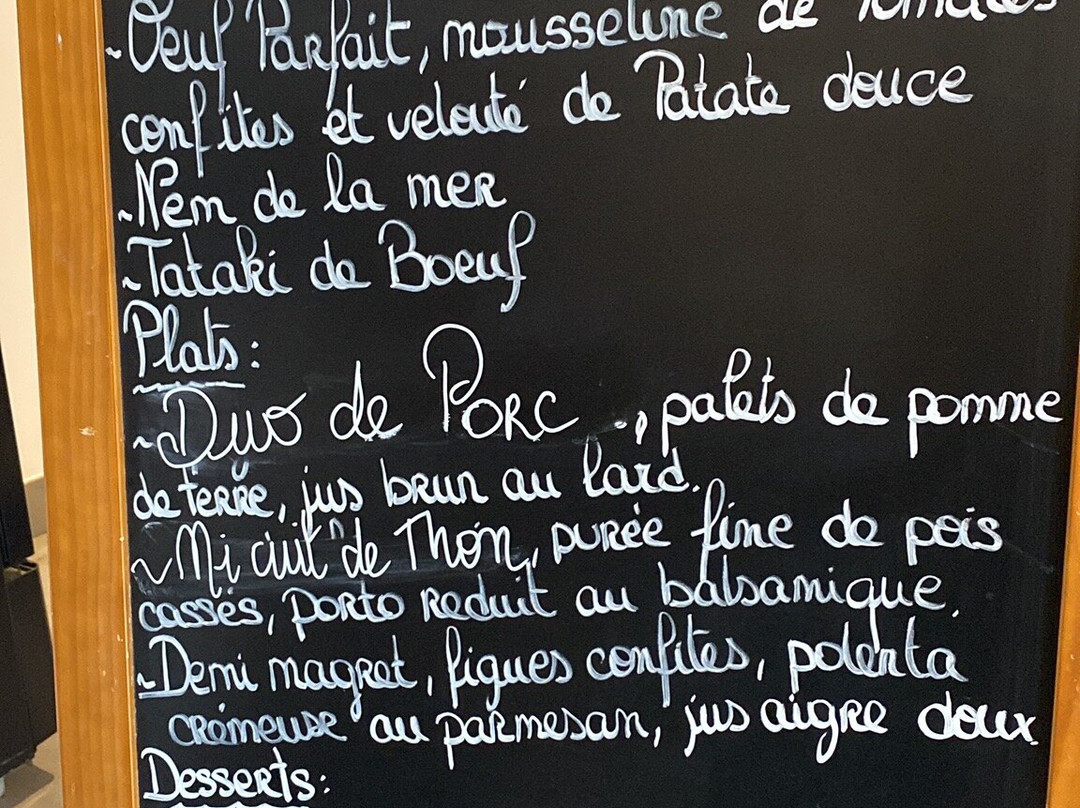 ~Oeuf Parfait, mousseline de Tomates
confites et velouté de Patate douce
~Nem de la mer
~Tataki de Boeuf
Plats:
~Duo de Porc ., palets de pomme
de terre, jus brun au lard.
~Mi cuit de Thon, purée fine de pois
cassés, porto reduit au balsamique.
~Demi magret, figues confites, polenta
crémeuse au parmesan, jus aigre doux
Desserts: